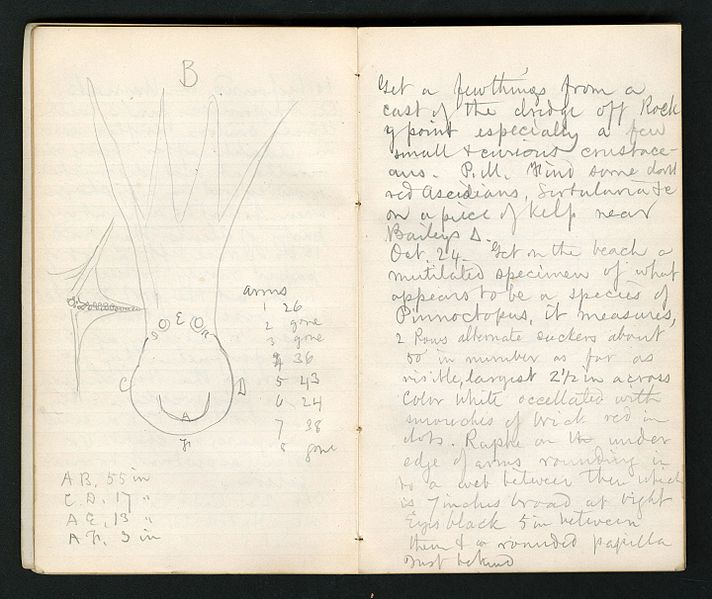 B
E
C
D
A
F
arms
1 26
2 gone
3 gone
4 36
5 43
6 24
7 38
8 gone
A B, 55 in
C D. 17 "
A E, 13 "
A F. 3 in
Get a few things from a
cast of the dredge off Rock
y point especially a few
small & curious crustace-
ans. P.M. Find some dark
red Ascidians, Sertularia &c
on a piece of kelp near
Baileys Δ.
Oct. 24. Get on the beach a
mutilated specimen of what
appears to be a species of
Pinnoctopus, it measures,
2 Rows alternate suckers about
50 in number as far as
visible, largest 2½ in across
Color white occellated with
smouches of brick red in
dots. Raphe on the under
edge of arms rounding in
to a web between them which
is 7 inches broad at right
Eyes black 5 in between
them & a rounded papilla
Just behind